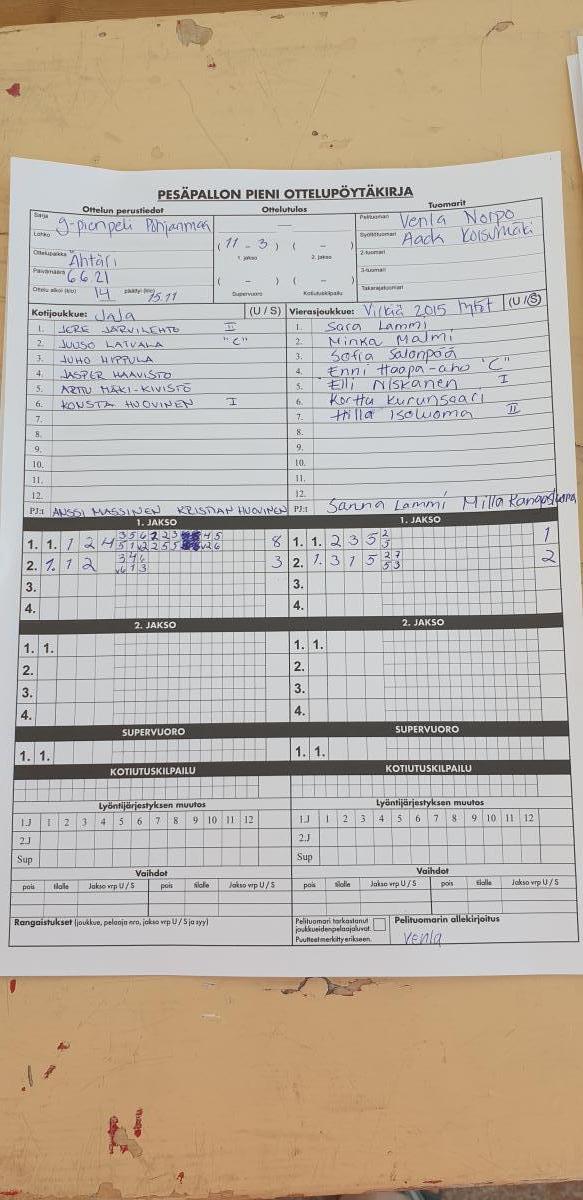 PESÄPALLON PIENI OTTELUPÖYTÄKIRJA
Ottelun perustiedot Ottelutulos Tuomarit
Sarja g-pienpeli Pohjanmaa
Lohko
Ottelupaikka Ähtäri
Päivämäärä 6.6.21
Ottelu alkoi (klo) 14 päättyi (klo) 15.11
( 11 - 3 ) ( - )
1. jakso 2. jakso
( - ) ( - )
Supervuoro Kotiutuskilpailu
Pelituomari Venla Norpo
Syöttötuomari
2-tuomari
3-tuomari
Takarajatuomari
Kotijoukkue: JaJa (U / S)
1. JERE JÄRVILEHTO II
2. JUUSO LATVALA "C"
3. JUHO HIPPULA
4. JASPER HAAVISTO
5. ARTTU MÄKI-KIVISTÖ
6. KONSTA HUOVINEN I
7.
8.
9.
10.
11.
12.
PJ:t ANSSI MASSINEN KRISTIAN HUOVINEN
Vierasjoukkue: 2015 (U / S)
1. Sara Lammi
2. Minka Malmi
3. Sofia Salonpää
4. Enni Haapa-aho "C"
5. Elli Niskanen I
6. Kerttu Kurunsaari
7. Hilla Isoluoma II
8.
9.
10.
11.
12.
PJ:t Sanna Lammi Milla Kangasluoma
1. JAKSO
1. 1. 1 2 4 8
2. 1. 1 2 3 4 6 6 1 3 3
3.
4.
1. JAKSO
1. 1. 2 3 5 2 5 1
2. 1. 3 1 5 2 7 5 3 2
3.
4.
2. JAKSO
1. 1.
2.
3.
4.
2. JAKSO
1. 1.
2.
3.
4.
SUPERVUORO
1. 1.
SUPERVUORO
1. 1.
KOTIUTUSKILPAILU
KOTIUTUSKILPAILU
Lyöntijärjestyksen muutos
1.J 1 2 3 4 5 6 7 8 9 10 11 12
2.J
Sup
Lyöntijärjestyksen muutos
1.J 1 2 3 4 5 6 7 8 9 10 11 12
2.J
Sup
Vaihdot
pois tilalle Jakso vrp U / S pois tilalle Jakso vrp U / S
Vaihdot
pois tilalle Jakso vrp U / S pois tilalle Jakso vrp U / S
Rangaistukset (joukkue, pelaaja nro, jakso vrp U / S ja syy)
Pelituomari tarkastanut
joukkueiden pelaajaluvat.
Puutteet merkitty erikseen.
Pelituomarin allekirjoitus
Venla